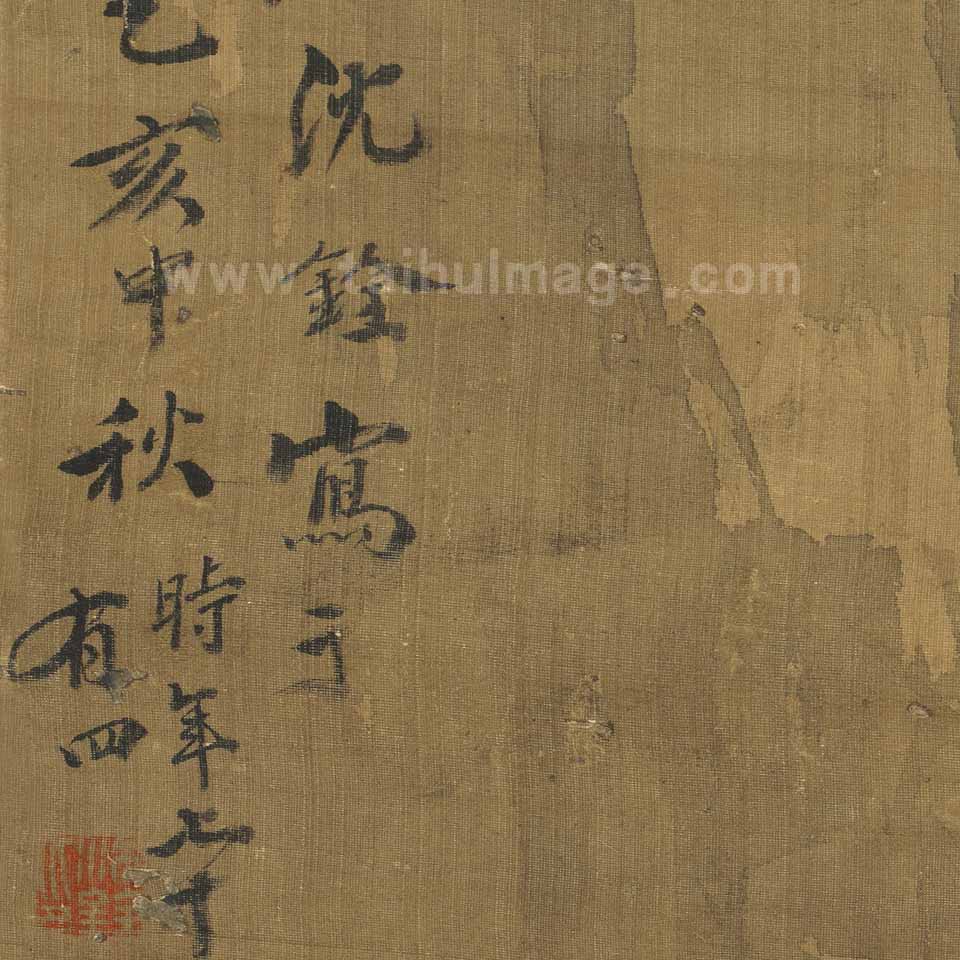 沈銓寫于
乙亥中秋
時年七十
有四
www.taihuImage.com